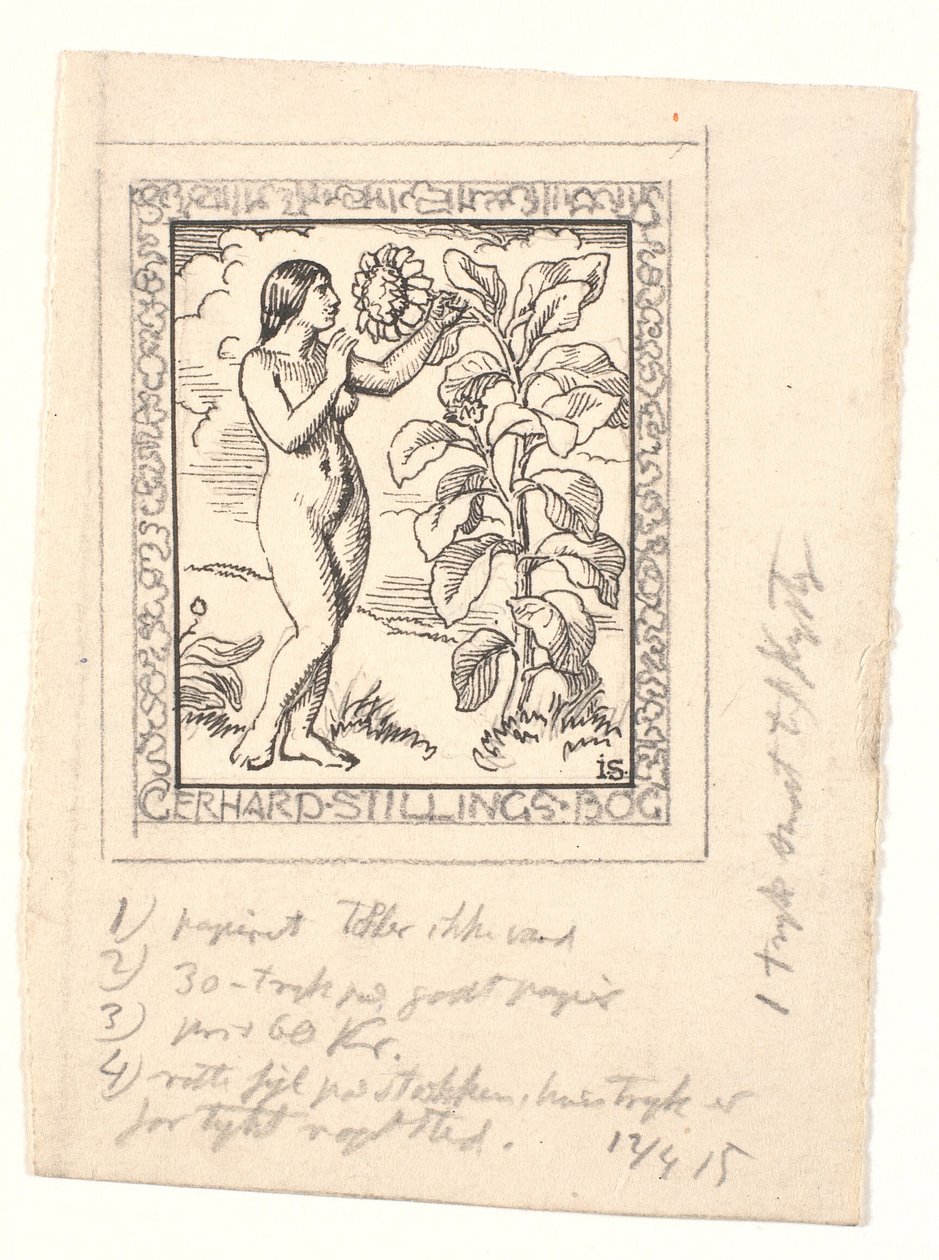 i.S.
GERHARD·STILLINGS·BOG
1) papiret Tåler ikke vand
2) 30-tryk på godt papir
3) pris 60 Kr.
4) rette fejl på stokken, hvis tryk er
for tykt noget sted.
12/4 15
1 tryk